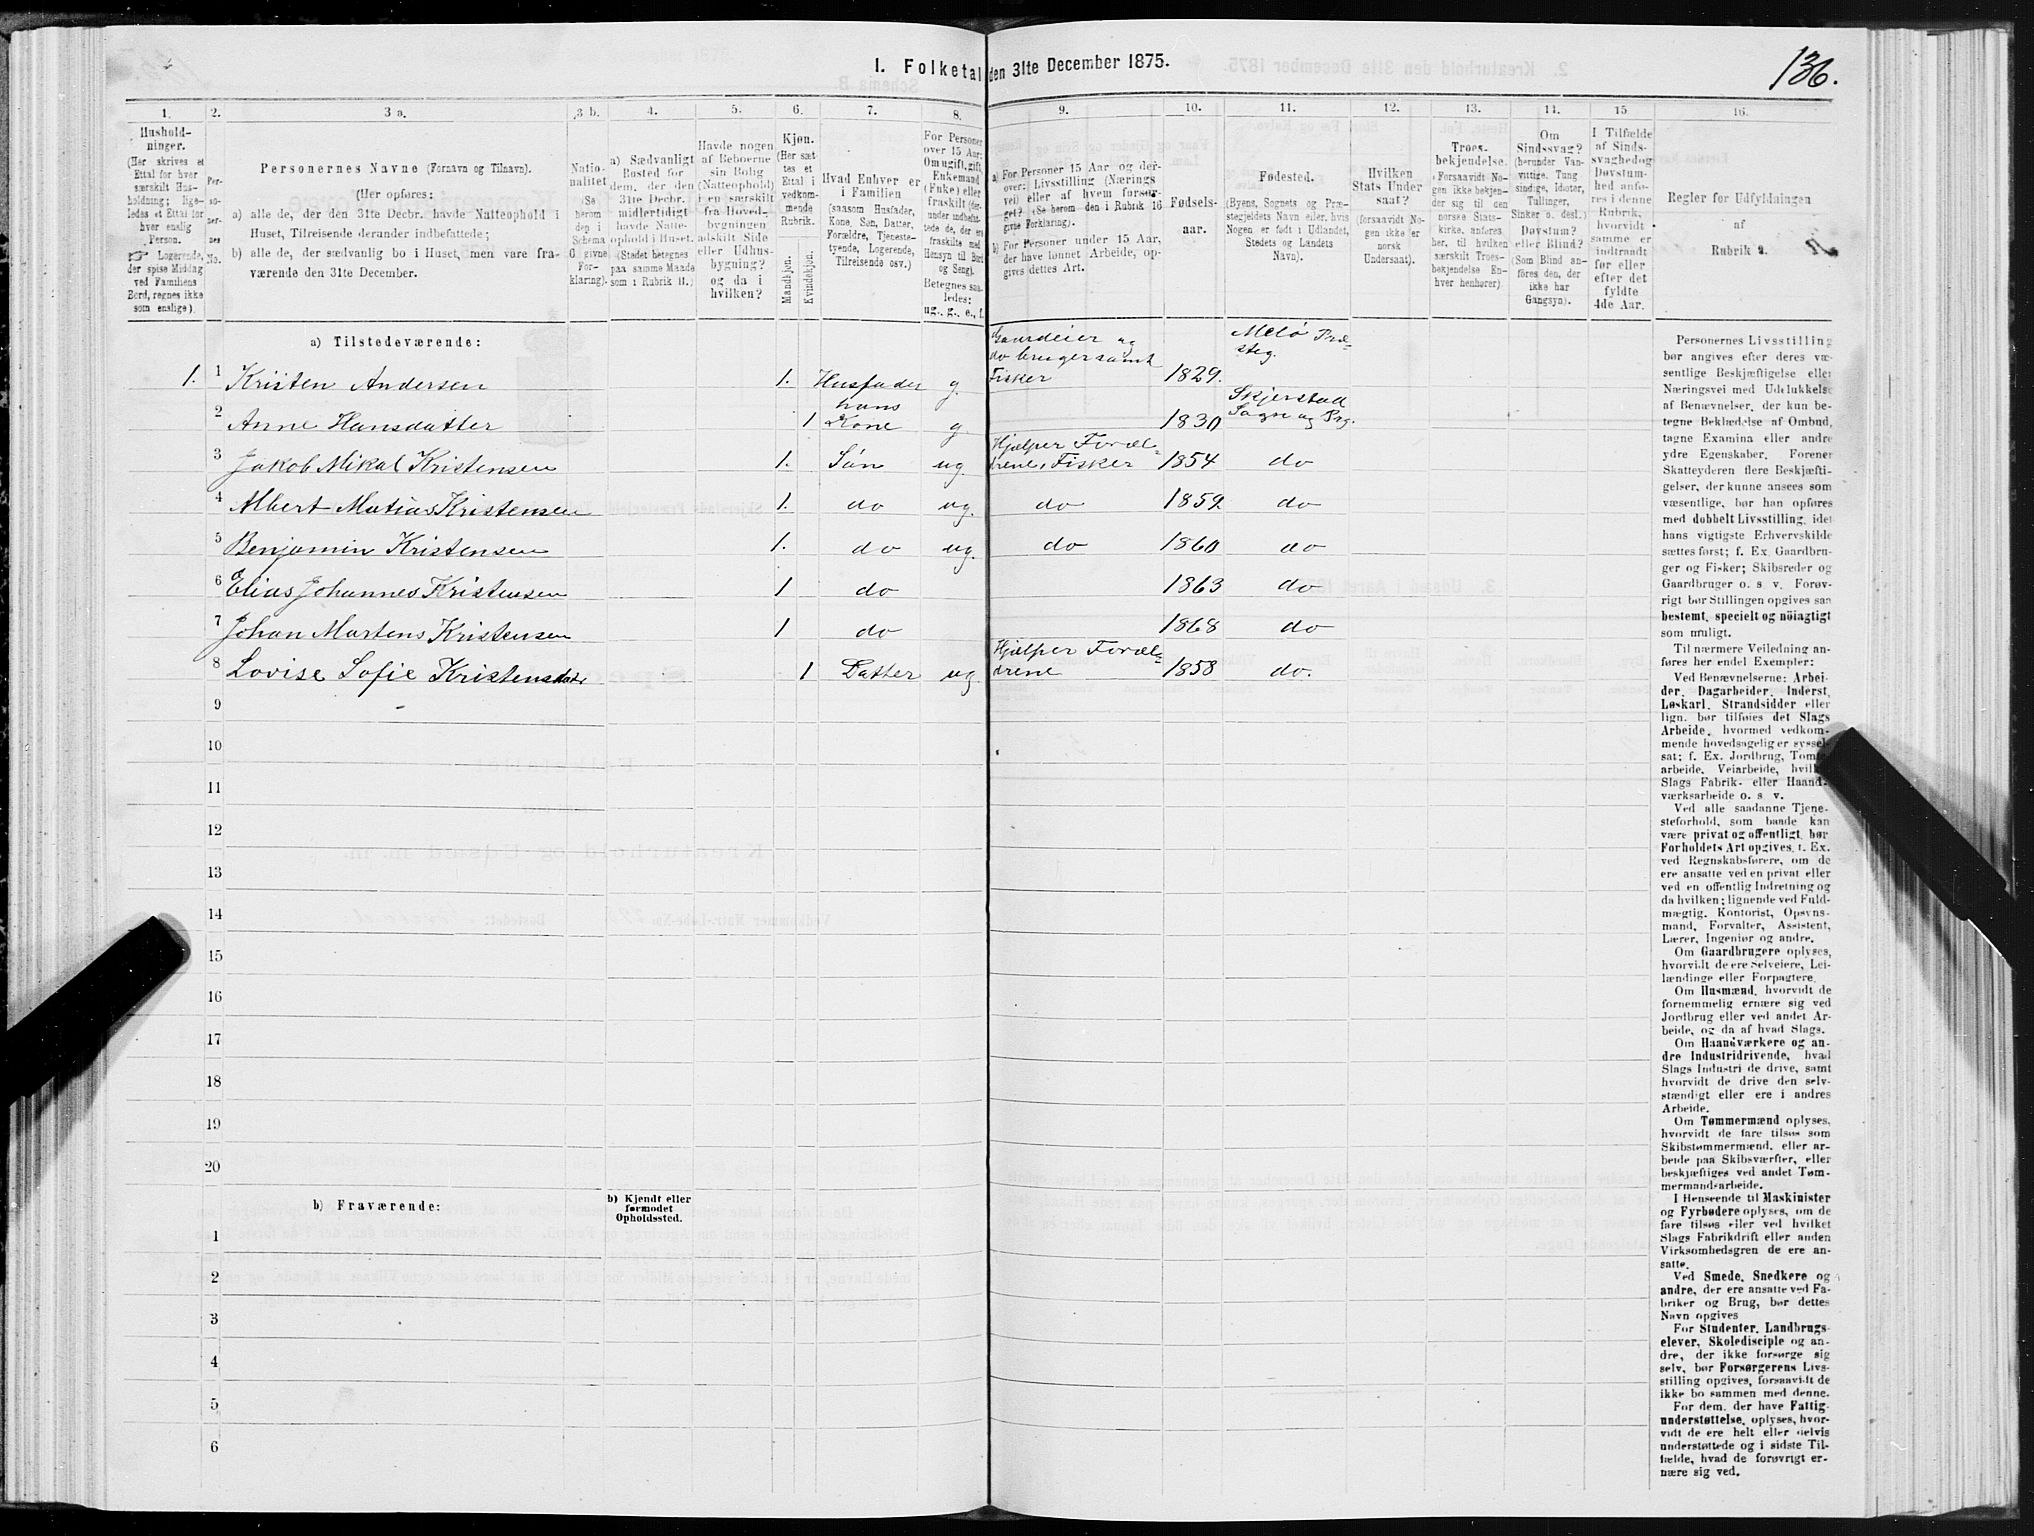 136.
1. Folketal den 31te December 1875.
1. 2. 3 a. 3 b. 4. 5. 6. 7. 8. 9. 10. 11. 12. 13. 14. 15 16.
Hushold-
ninger.
(Her skrives et
Ettal for hver
særskilt Hus-
holdning; lige-
ledes et Ettal for
hver enslig
Person.
☞ Logerende,
der spise Middag
ved Familiens
Bord, regnes ikke
som enslige).
Per-
so-
nes
No.
Personernes Navne (Fornavn og Tilnavn).
(Her opføres:
a) alle de, der den 31te Decbr. havde Natteophold i
Huset, Tilreisende derunder indbefattede;
b) alle de, der sædvanlig bo i Huset, men vare fra-
værende den 31te December.
Natio-
nalitet
(Se
herom
den i
Schema
G givne
For-
klaring).
a) Sædvanligt
Bosted for
dem, der den
31te Decbr.
midlertidigt
havde Natte-
ophold i Huset.
(Stedet betegnes
paa samme Maade
som i Rubrik 11.)
Havde nogen
af Beboerne
sin Bolig
(Natteophold)
i en særskilt
fra Hoved-
bygningen
adskilt Side
eller Udhus-
bygning?
og da i
hvilken?
Kjøn.
(Her sæt-
tes et
Ettal i
vedkom-
mende
Rubrik.
Mandkjøn.
Kvindekjøn.
Hvad Enhver er
i Familien
(saasom Husfader,
Kone, Søn, Datter,
Forældre, Tjeneste-
tyende, Logerende,
Tilreisende osv.)
For Personer
over 15 Aar:
Om ugift, gift,
Enkemand
(Enke) eller
fraskilt (der-
under indbefat-
tede de, der ere
fraskilte med
Hensyn til Bord
og Seng).
Betegnes saa-
ledes:
ug., g., e., f.
a) For Personer 15 Aar og der-
over: Livsstilling (Nærings
vei) eller af hvem forsør-
get? (Se herom den i Rubrik 16
givne Forklaring).
b) For Personer under 15 Aar,
der have lønnet Arbeide, op-
gives dettes Art.
Fødsels-
aar.
Fødested.
(Byens, Sognets og Præ-
stegjeldets Navn eller, hvis
Nogen er født i Udlandet,
Stedets og Landets
Navn).
Hvilken
Stats Under
saat?
(forsaavidt No-
gen ikke er
norsk
Undersaat).
Troes-
bekjendelse.
(Forsaavidt No-
gen ikke bekjen-
der sig til den
norske Stats-
kirke, anføres
her, til hvilken
særskilt Troes-
bekjendelse En-
hver henhører)
Om
Sindssvag?
(herunder Van-
vittige, Tung
sindige, Idioter,
Tullinger,
Sinker o. desl.)
Døvstum?
eller Blind?
(Som Blind an-
føres den, der
ikke har
Gangsyn).
I Tilfælde
af Sinds-
svaghed og
Døvstum-
hed anfø-
res i denne
Rubrik,
hvorvidt
samme er
indtraadt
før eller
efter det
fyldte
4de Aar.
Regler for Udfyldningen
af
Rubrik 9.
a) Tilstedeværende:
1. 1 Kristen Andersen 1. Husfader g. Gaardeier og do bruger samt Fisker 1829. Melö Præ- steg.
2 Anne Hansdatter 1 hans Kone g. 1830 Skjerstad Sogn og Prg.
3 Jakob Mikal Kristensen 1. Sön ug. Hjælper Foræl- drene, Fisker 1854 do
4 Albert Matias Kristensen 1. do ug. do 1859 do
5 Benjamin Kristensen 1. do ug. do 1860 do
6 Elias Johannes Kristensen 1 do 1863 do
7 Johan Martens Kristensen 1 do 1868 do
8 Lovise Sofie Kristensdatr 1 Datter ug. Hjælper Foræl- drene 1858 do.
9
10
11
12
13
14
15
16
17
18
19
20
b) Fraværende:
b) Kjendt eller
formodet
Opholdssted.
1
2
3
4
5
6
Personernes Livsstilling
bør angives efter deres væ-
sentlige Beskjæftigelse eller
Næringsvei med Udelukkelse
af Benævnelser, der kun be-
tegne Beklædelse af Ombud,
tagne Examina eller andre
ydre Egenskaber. Forener
Skatteyderen flere Beskjæfti-
gelser, der kunne ansees som
væsentlige, bør han opføres
med dobbelt Livsstilling, idet
hans vigtigste Erhvervskilde
sættes først; f. Ex. Gaardbru-
ger og Fisker; Skibsreder og
Gaardbruger o. s v. Forøv-
rigt bør Stillingen opgives saa
bestemt, specielt og nöiagtigt
som muligt.
Til nærmere Veiledning an-
føres her endel Exempler:
Ved Benævnelserne: Arbei-
der, Dagarbeider, Inderst,
Løskarl, Strandsidder eller
lign. bør tilføies det Slags
Arbeide, hvormed vedkom-
mende hovedsagelig er syssel-
sat; f. Ex. Jordbrug, Tomte-
arbeide, Veiarbeide, hvilket
Slags Fabrik- eller Haand-
værksarbeide o. s. v.
Ved alle saadanne Tjene-
steforhold, som baade kan
være privat og offentligt, bør
Forholdets Art opgives, t. Ex.
ved Regnskabsførere, om de
ere ansatte ved en privat eller
ved en offentlig Indretning og
da hvilken; lignende ved Fuld-
mægtig, Kontorist, Opsyns-
mand, Forvalter, Assistent,
Lærer, Ingeniør og andre.
Om Gaardbrugere oplyses,
hvorvidt de ere Selveiere, Lei-
lændinge eller Forpagtere.
Om Husmænd, hvorvidt de
fornemmelig ernære sig ved
Jordbrug eller ved andet Ar-
beide, og da af hvad Slags.
Om Haandværkere og an-
dre Industridrivende, hvad
Slags Industri de drive, samt
hvorvidt de drive den selv-
stændigt eller ere i andres
Arbeide.
Om Tømmermænd oplyses,
hvorvidt de fare tilsøs som
Skibstømmermænd, eller ar-
beide paa Skibsværfter, eller
beskjæftiges ved andet Tøm-
mermandsarbeide.
I Henseende til Maskinister
og Fyrbødere oplyses, om de
fare tilsøs eller ved hvilket
Slags Fabrikdrift eller anden
Virksomhedsgren de ere an-
satte.
Ved Smede, Snedkere og
andre, der ere ansatte ved Fa-
briker og Brug, bør dettes
Navn opgives
For Studenter, Landbrugs-
elever, Skoledisciple og an-
dre, der ikke forsørge sig
selv, bør Forsørgerens Livs-
stilling opgives, forsaavidt de
ikke bo sammen med denne.
For dem, der have Fattig-
understøttelse, oplyses, hvor-
vidt de ere helt eller delvis
understøttede og i sidste Til-
fælde, hvad de forøvrigt er-
nære sig ved.